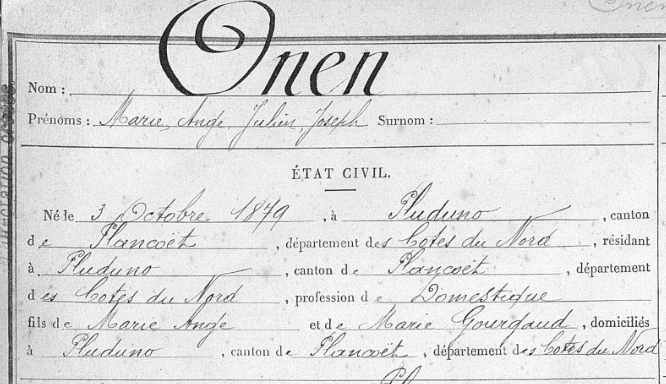 Onen
Nom : Onen
Prénoms : Marie, Ange, Julien, Joseph Surnom :
ÉTAT CIVIL.
Né le 3 Octobre 1879, à Pluduno, canton
de Plancoët, département des Côtes du Nord, résidant
à Pluduno, canton de Plancoët, département
des Côtes du Nord, profession de Domestique
fils de Marie Ange et de Marie Gourgaud, domiciliés
à Pluduno, canton de Plancoët, département des Côtes du Nord